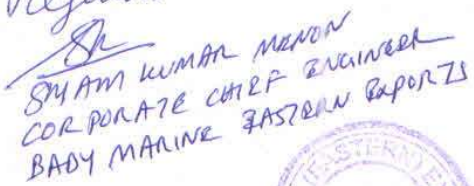 Regards
SHYAM KUMAR MENON
CORPORATE CHIEF ENGINEER
BABY MARINE EASTERN EXPORTS
EASTERN E